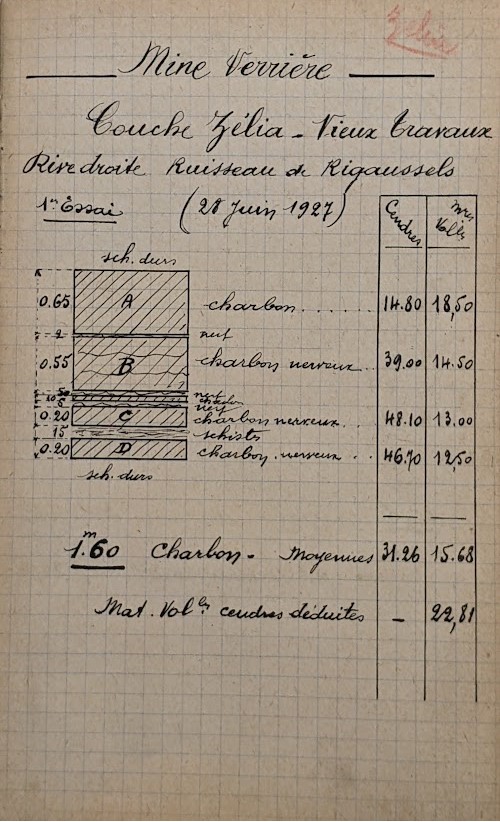 Zélia
Mine Verrière
Couche Zélia - Vieux travaux
Rive droite Ruisseau de Rigaussels
1er Essai (28 Juin 1927) Cendres mres Voles
sch. durs
0.65 A charbon...... 14.80 18,50
2 nerf
0.55 B charbon nerveux.. 39.00 14.50
nerf
charbon
nerf
0.20 C charbon nerveux.. 48.10 13.00
15 schiste
0.20 D charbon. nerveux.. 46.70 12,50
sch. durs
1.m60 Charbon - Moyennes 31.26 15.68
Mat. Volles cendres déduites - 22,81